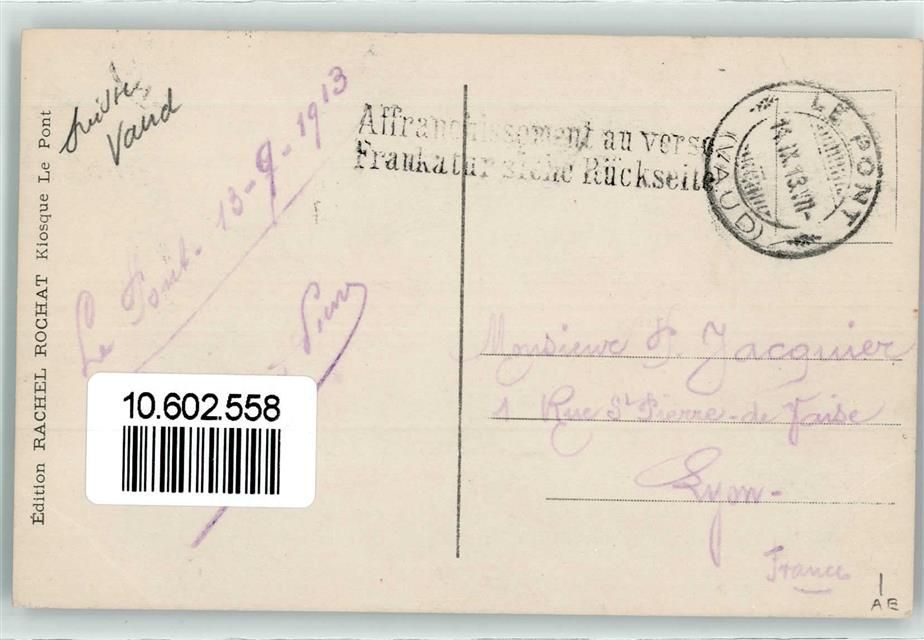 Suisse
Vaud
Le Pont. 13-9-1913
Affranchissement au verso
Frankatur siehe Rückseite
LE PONT
14.IX.13.VII-
(VAUD)
Édition RACHEL ROCHAT Kiosque Le Pont
Monsieur P. Jacquier
1 Rue St Pierre-de Vaise
Lyon-
France
10.602.558
AE